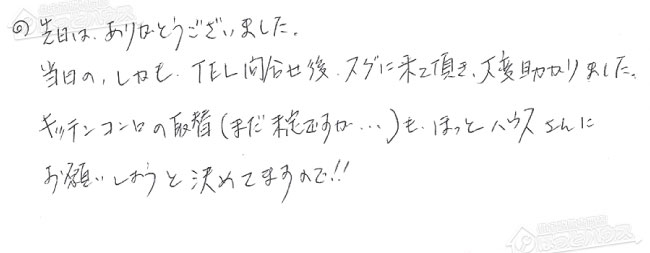 ① 先日は、ありがとうございました。
当日の、しかも、TEL問合せ後、スグに来て頂き、大変助かりました。
キッチンコンロの取替(まだ未定ですが…)も、ほっとハウスさんに
お願いしようと決めてますので!!